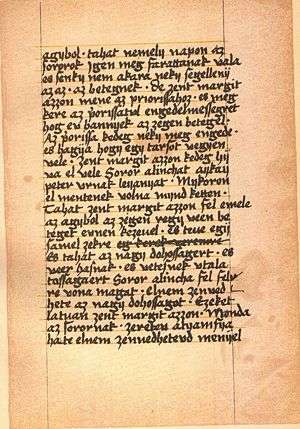 agybol · tahat nemely napon az
sororok Igen meg farattanak vala
es senky nem akara neky segelleny
az az · az betegnek · de zent margit
azzon mene az priorissahoz · es meg
kere az porissatul engedelmesseget
hog ev bannyek az zegen beteggel ·
Az porissa kedeg neky meg engede ·
es hagya hogy egy tarsot vegyen
vele · Zent margit azzon kedeg hy
va el vele Soror alinchat aykay
peter vrnak leyanyat · Mykoron
el mentenek volna mynd ketten ·
Tahat zent margit azzon fel emele
az agybol az zegen vegy veen be
teget evnen kezevel · Es teve egy
samel zekre eg kerek zerenvre
es tahat az nagy dohossagert · es
veer hasnak · es vetesnek vtala
tossagaert Soror alincha fel fely
re vona magat · Elnem zenved
hete az nagy dohossagot · Ezeket
latuan zent margit azzon · Monda
az sorornak · zeretev atyamfya
hate elnem zenuedheteud mennyel